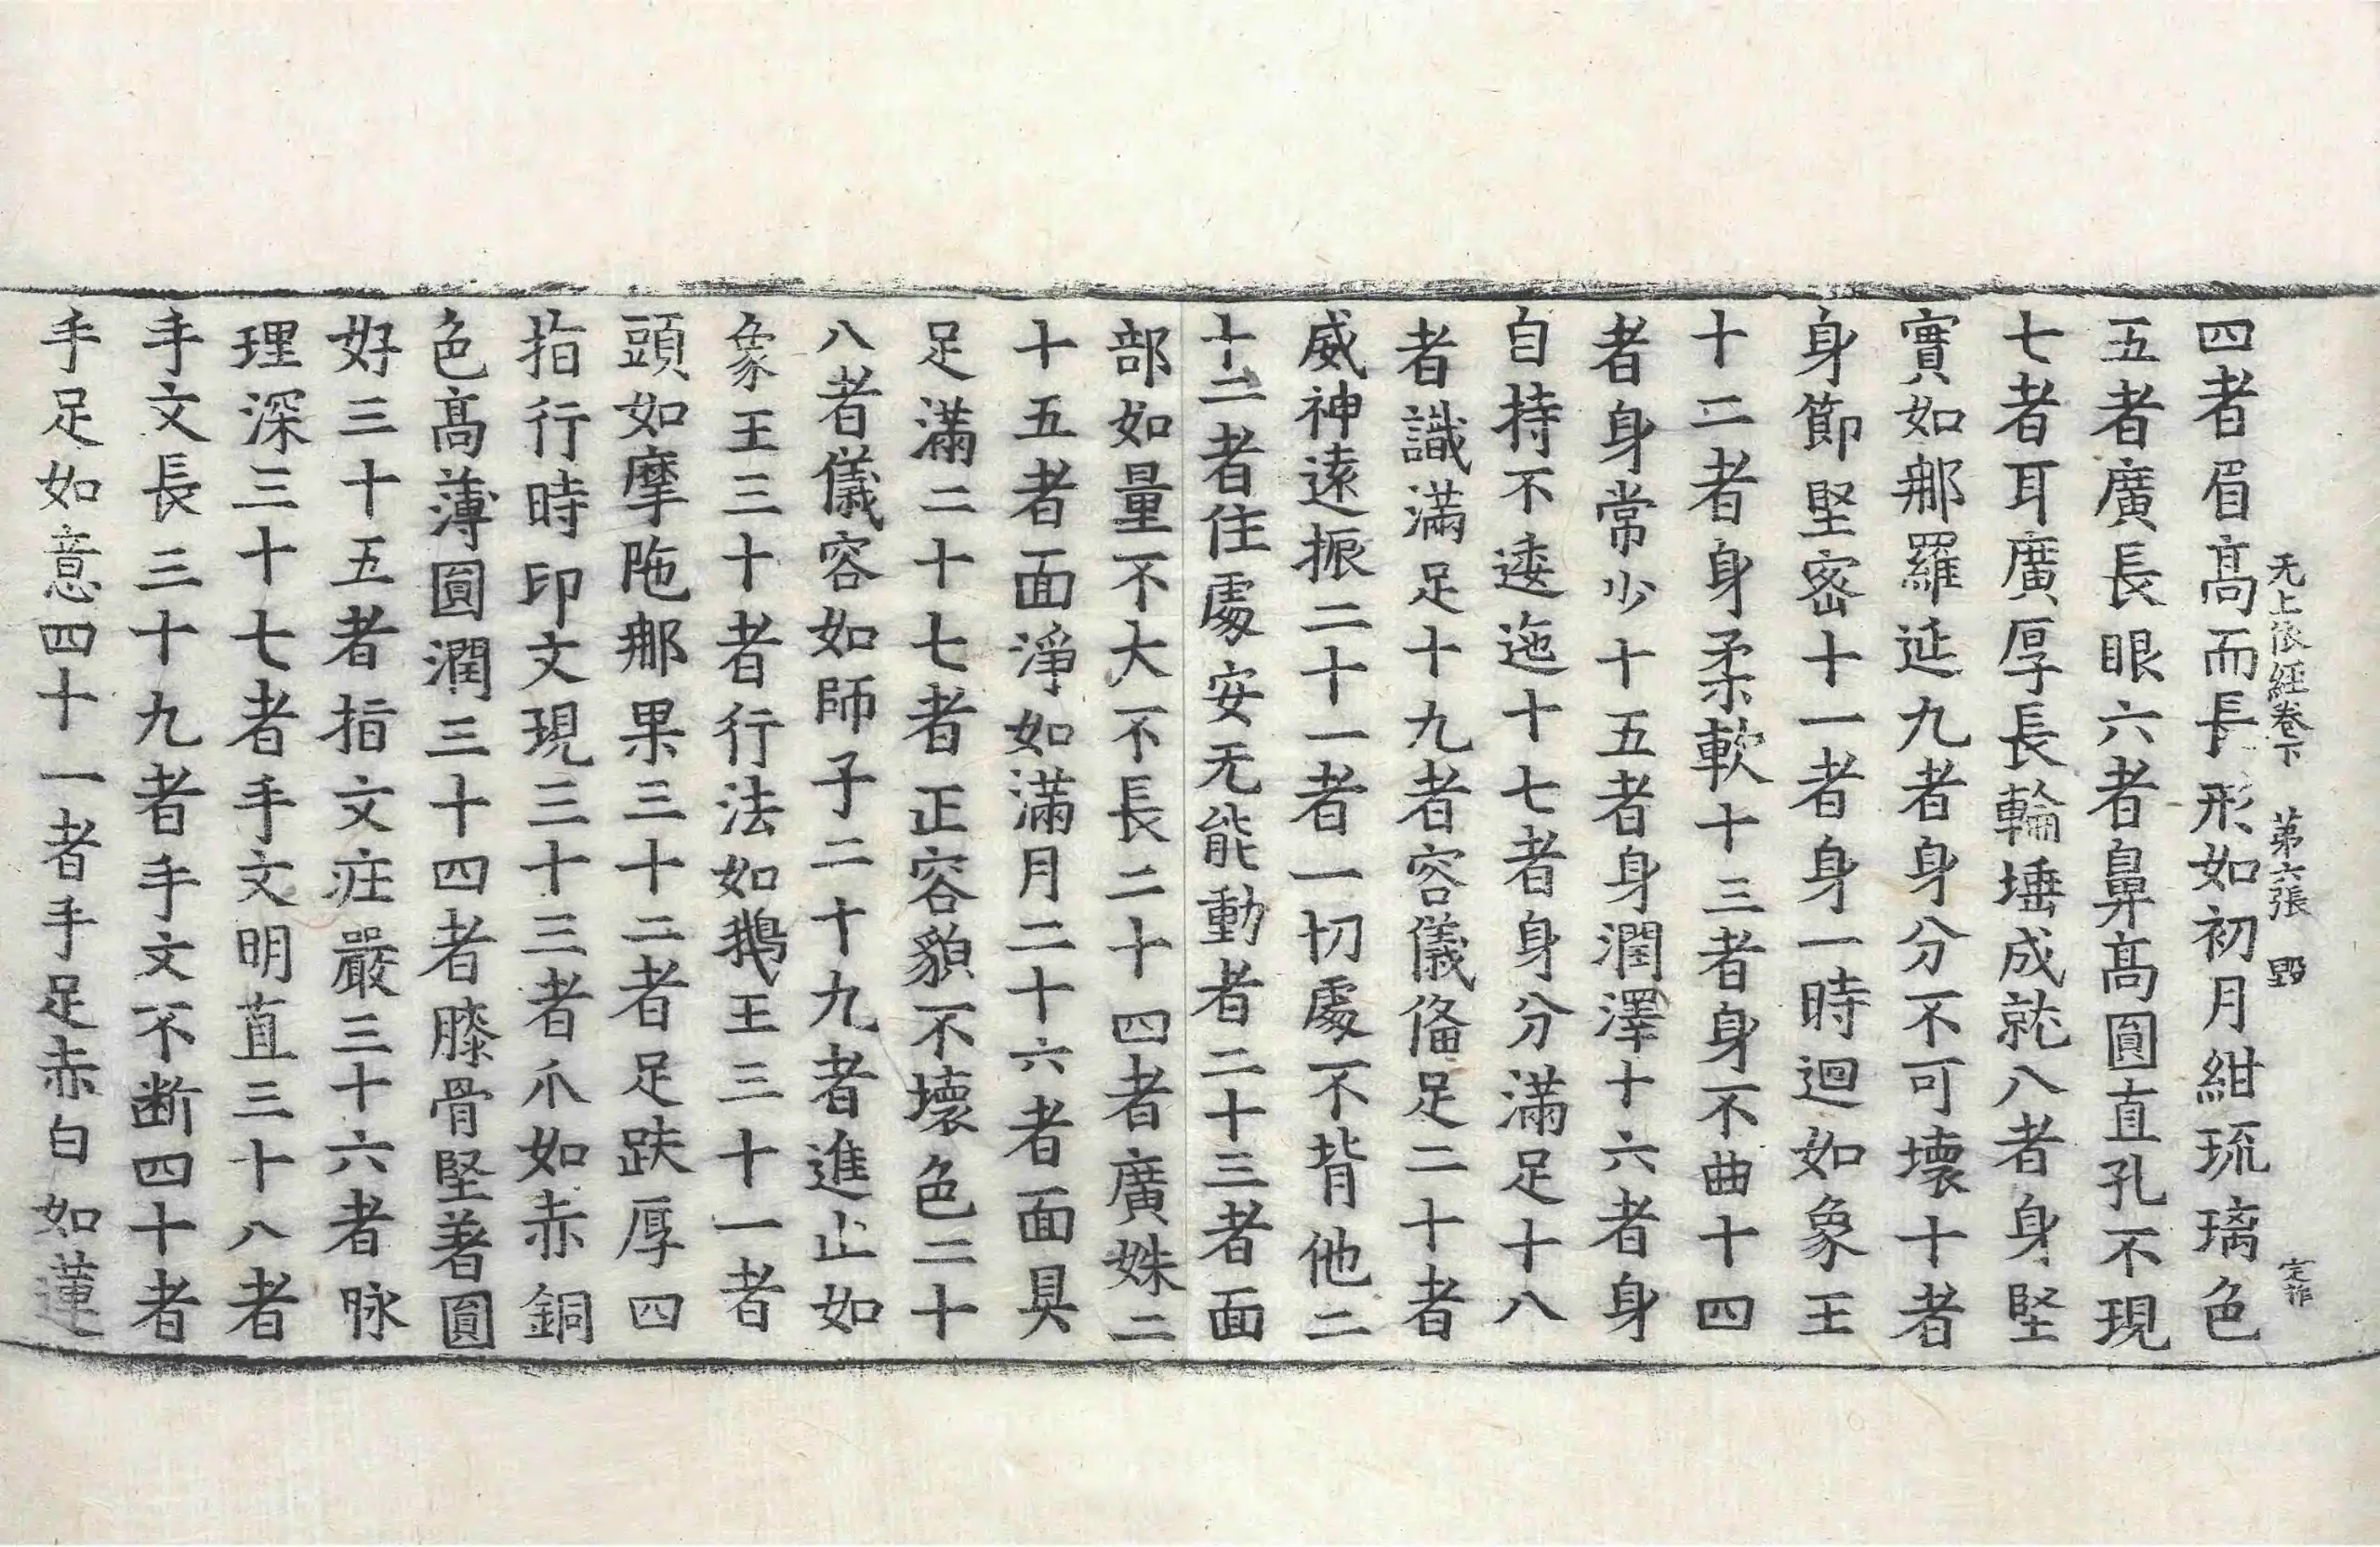 无上依經卷下 第六張 毁 定葄
四者眉髙而長形如初月紺琉璃色
五者廣長眼六者鼻髙圓直孔不現
七者耳廣厚長輪埵成就八者身堅
實如那羅延九者身分不可壞十者
身節堅密十一者身一時迴如象王
十二者身柔軟十三者身不曲十四
者身常少十五者身潤澤十六者身
自持不逶迤十七者身分滿足十八
者識滿足十九者容儀俻足二十者
威神遠振二十一者一切處不背他二
十二者住處安无能動者二十三者面
部如量不大不長二十四者廣姝二
十五者面淨如滿月二十六者面具
足滿二十七者正容貌不壞色二十
八者儀容如師子二十九者進止如
象王三十者行法如鵝王三十一者
頭如摩陁那果三十二者足趺厚四
指行時印文現三十三者爪如赤銅
色髙薄圓潤三十四者膝骨堅著圓
好三十五者指文疘嚴三十六者脉
理深三十七者手文明直三十八者
手文長三十九者手文不断四十者
手足如意四十一者手足赤白如蓮